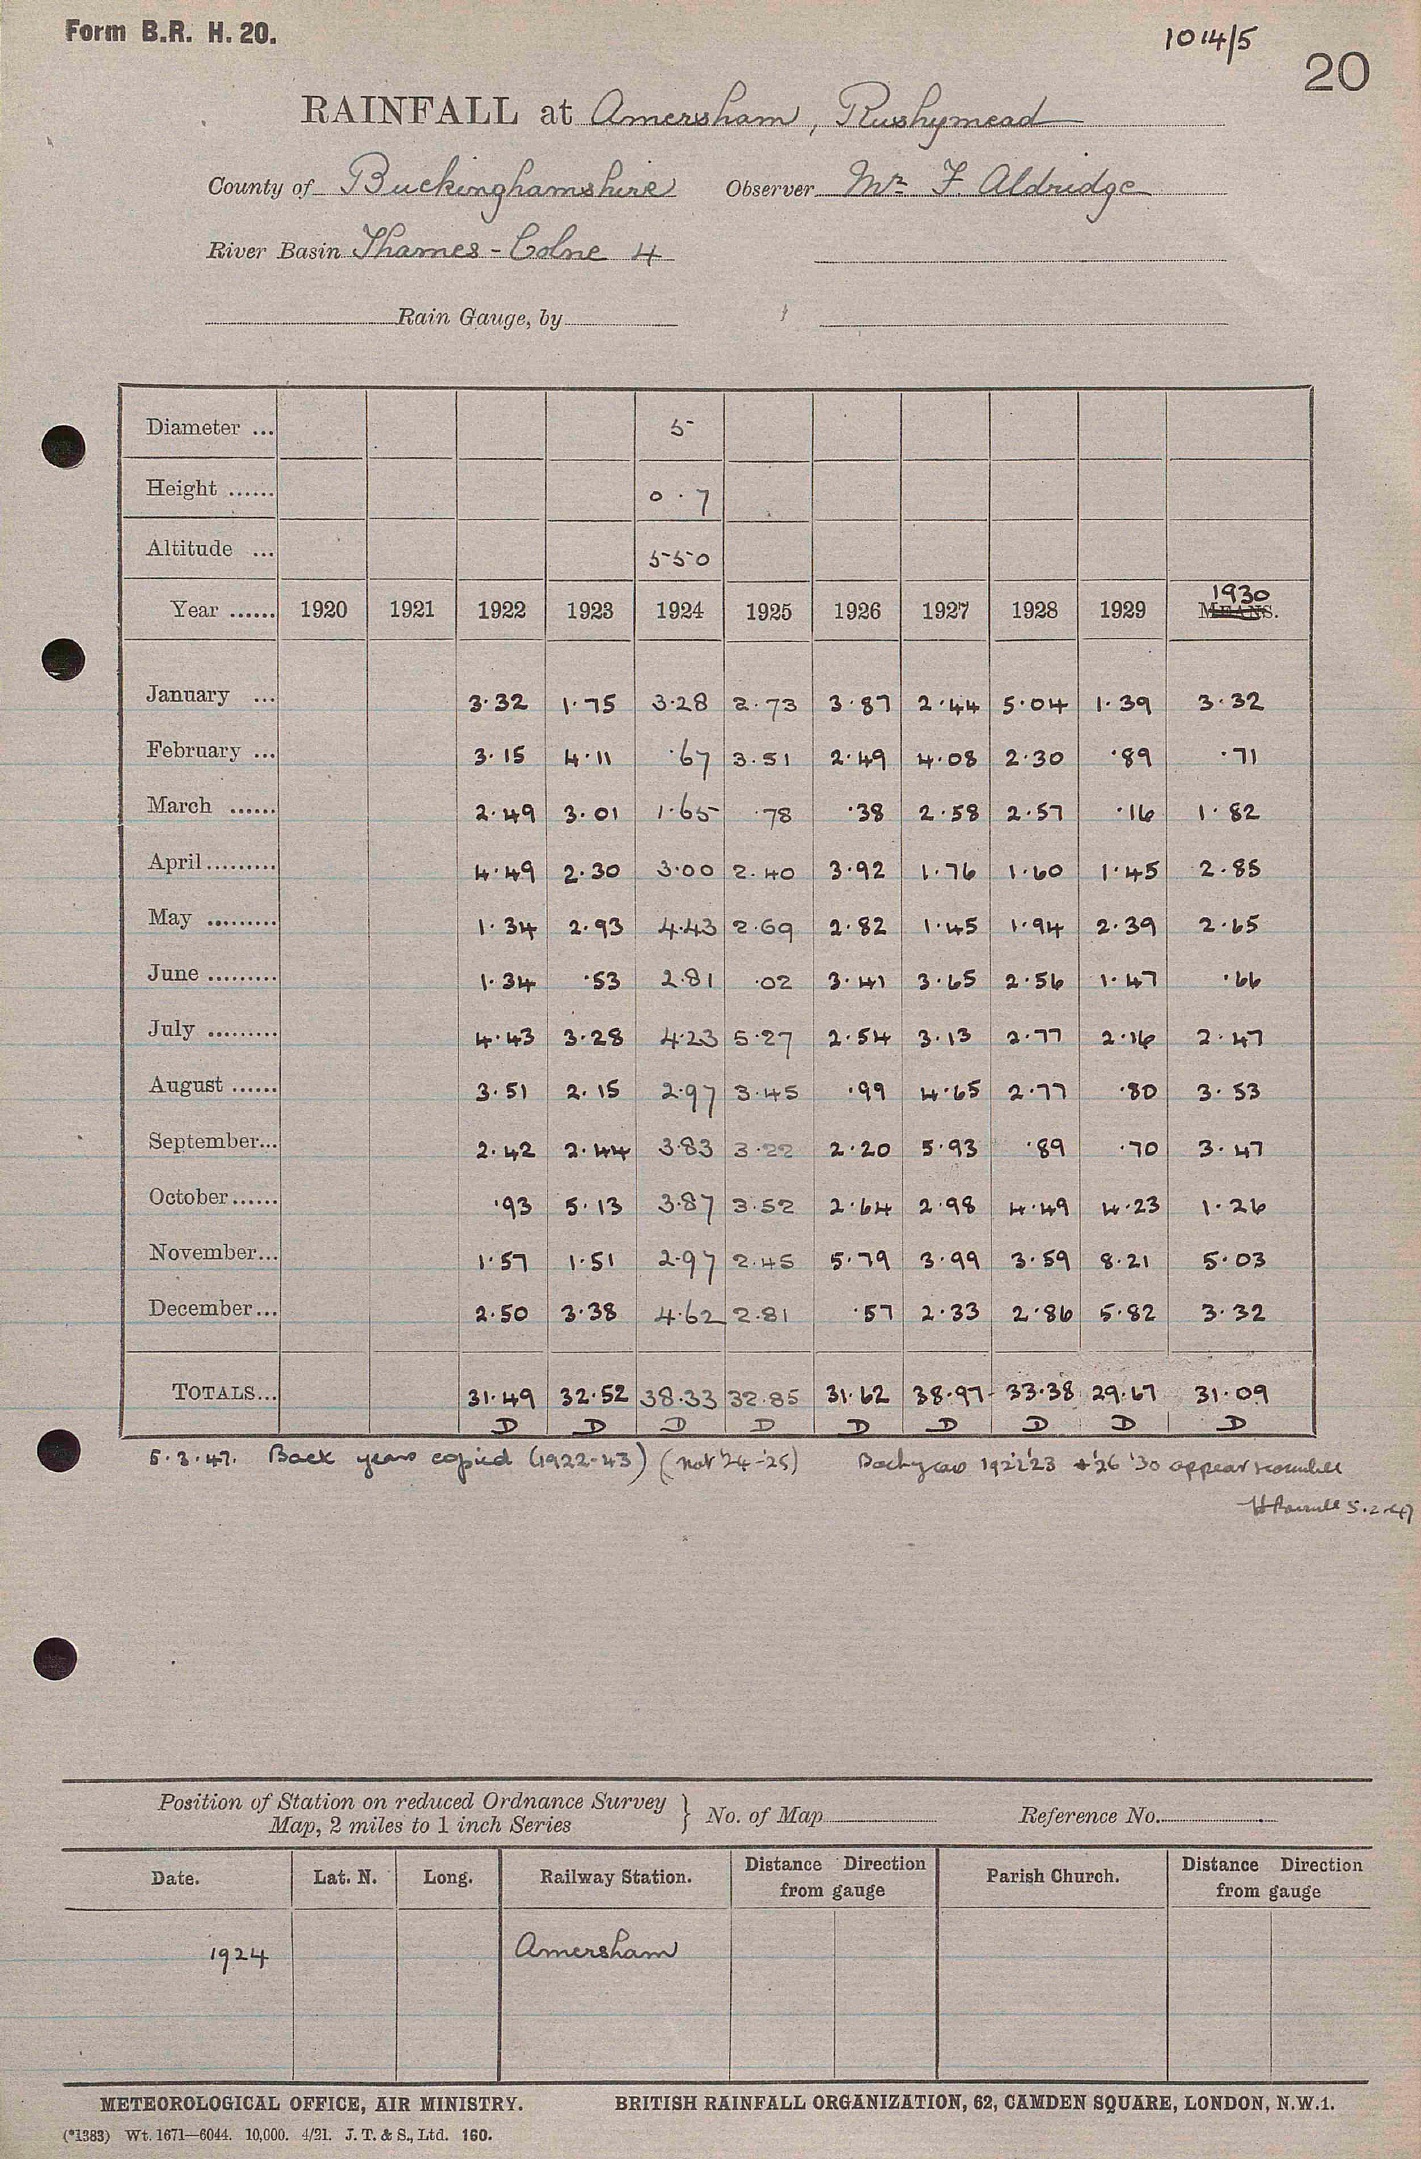 Form B.R. H. 20.
1014/5
20
RAINFALL at Amersham, Rushymead
County of Buckinghamshire Observer Mr F. Aldridge
River Basin Thames - Colne 4
Rain Gauge, by
Diameter ... 5
Height ...... 0.7
Altitude ... 550
Year ...... 1920 1921 1922 1923 1924 1925 1926 1927 1928 1929 MEANS. 1930
January ... 3.32 1.75 3.28 2.73 3.87 2.44 5.04 1.39 3.32
February ... 3.15 4.11 .67 3.51 2.49 4.08 2.30 .89 .71
March ...... 2.49 3.01 1.65 .78 .38 2.58 2.57 .16 1.82
April......... 4.49 2.30 3.00 2.40 3.92 1.76 1.60 1.45 2.85
May ......... 1.34 2.93 4.43 2.69 2.82 1.45 1.94 2.39 2.65
June ......... 1.34 .53 2.81 .02 3.41 3.65 2.56 1.47 .66
July ......... 4.43 3.28 4.23 5.27 2.54 3.13 2.77 2.16 2.47
August ...... 3.51 2.15 2.97 3.45 .99 4.65 2.77 .80 3.53
September... 2.42 2.44 3.83 3.22 2.20 5.93 .89 .70 3.47
October...... .93 5.13 3.87 3.52 2.64 2.98 4.49 4.23 1.26
November... 1.57 1.51 2.97 2.45 5.79 3.99 3.59 8.21 5.03
December... 2.50 3.38 4.62 2.81 .57 2.33 2.86 5.82 3.32
TOTALS... 31.49 32.52 38.33 32.85 31.62 38.97 33.38 29.67 31.09
D D D D D D D D D
5.3.47. Back years copied (1922-43) (not '24-'25) Back years 1922 '23 + '26 '30 appear
5.2.47
Position of Station on reduced Ordnance Survey
Map, 2 miles to 1 inch Series } No. of Map Reference No.
Date. Lat. N. Long. Railway Station. Distance Direction from gauge Parish Church. Distance Direction from gauge
1924 Amersham
METEOROLOGICAL OFFICE, AIR MINISTRY. BRITISH RAINFALL ORGANIZATION, 62, CAMDEN SQUARE, LONDON, N.W.1.
(*1383) Wt. 1671—6044. 10,000. 4/21. J. T. & S., Ltd. 160.